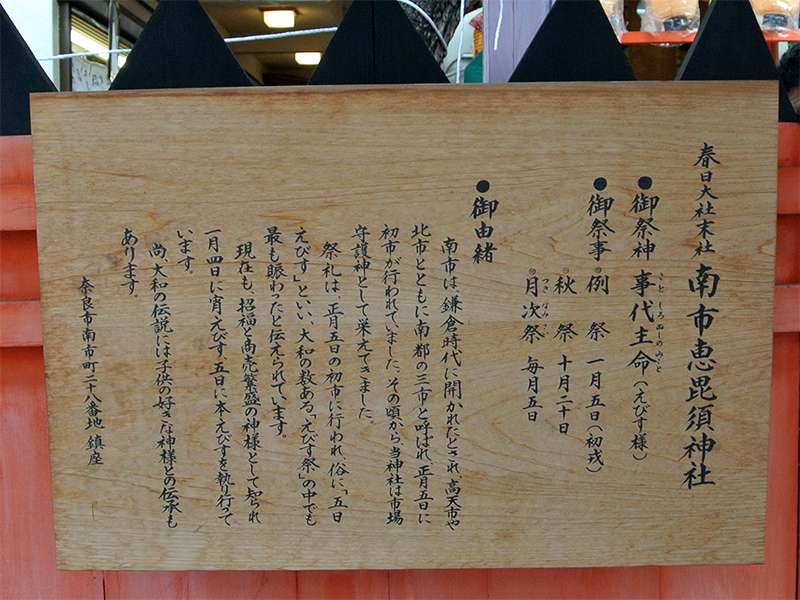 春日大社末社 南市恵毘須神社
●御祭神 事代主命(えびす様)
ことしろぬしのみこと
●御祭事 ◎例祭 一月五日(初戎)
◎秋祭 十月二十日
◎月次祭 毎月五日
つきなみさい
●御由緒
南市は、鎌倉時代に開かれたとされ、高天市や
北市とともに南都の三市と呼ばれ、正月五日に
初市が行われていました。その頃から、当神社は市場
守護神として栄えてきました。
祭礼は、正月五日の初市に行われ、俗に「五日
えびす」といい、大和の数ある「えびす祭」の中でも
最も賑わったと伝えられています。
現在も、招福と商売繁盛の神様として知られ
一月四日に宵えびす、五日に本えびすを執り行って
います。
尚大和の伝説には子供の好きな神様との伝承も
あります。
奈良市南市町二十八番地 鎮座